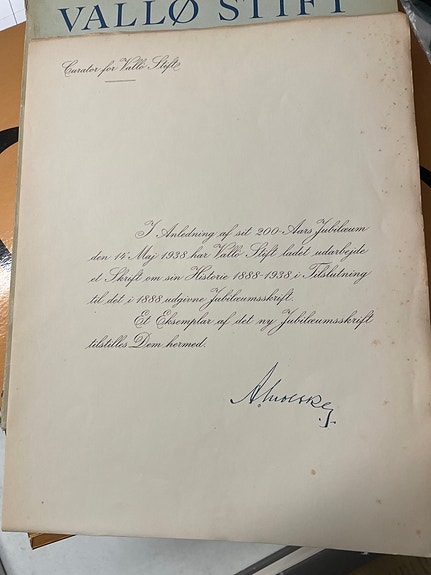 VALLØ STIFT
Curator for Vallö Stift
I Anledning af sit 200-Aars Jubilæum
den 14 Maj 1938 har Vallö Stift ladet udarbejde
et Skrift om sin Historie 1888-1938 i Tilslutning
til det i 1888 udgivne Jubilæumsskrift.
Et Eksemplar af det ny Jubilæumsskrift
tilstilles Dem hermed.